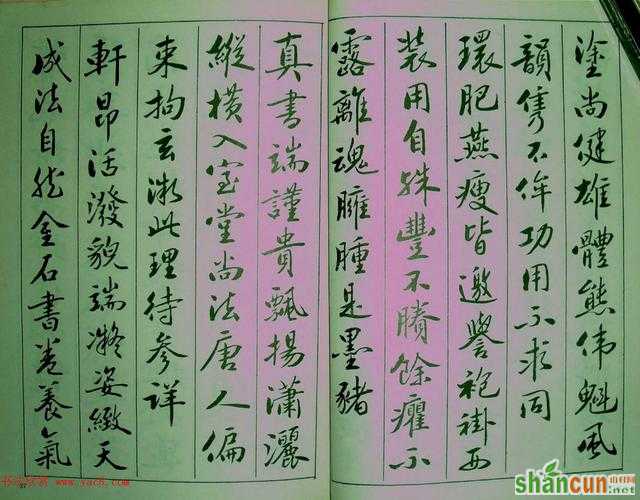 塗尚健雄體態偉魁風
韻雋不侔功用不求同
環肥燕瘦皆邀譽袍褂西
裝用自殊豐不賸餘癯不
露離魂臃腫是墨豬
真書端謹貴飄揚瀟灑
縱橫入室堂尚法唐人偏
束拘玄微此理待參詳
軒昂活潑貌端凝姿緻天
成法自然金石書卷養氣
书法欣赏 www.yac8.com
shancun
山村网
.net